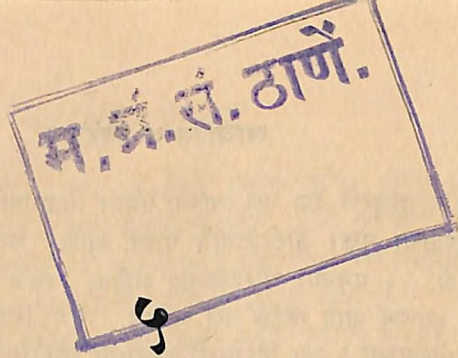 म. ग्रं. सं. ठाणें.
१